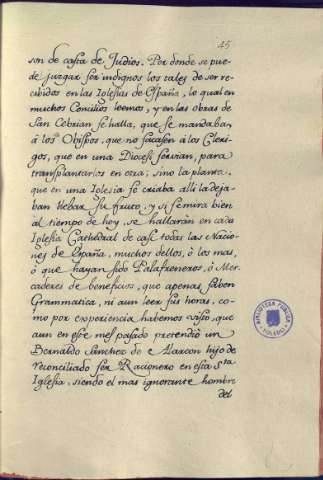 45
son de casta de Judios. Por donde se pue-
de juzgar ser indignos los tales de ser re-
cibidos en las Iglesias de España, lo qual en
muchos Concilios leemos, y en las obras de
San Cebrian se halla, que se mandaban
à los Obispos, que no sacasen à los Cleri-
gos, que en una Diocesi servian, para
transplantarlos en otra; sino la planta,
que en una Iglesia se criaba alli la deja-
ban llebar su fruto, y si se mira bien
al tiempo de hoy, se hallarán en cada
Iglesia Cathedral de casi todas las Nacio-
nes de España, muchos dellos, ò los mas,
ò que hayan sido Palafreneros, ò Mer-
caderes de beneficios, que apenas saben
Grammatica, ni aun leer sus horas, co-
mo por experiencia habemos visto, que
aun en este mes pasado pretendiò un
Bernaldo Sanchez de Alarcon hijo de
reconciliado ser Racionero en esta Sta
Iglesia, siendo el mas ignorante hombre
del
BIBLIOTECA PUBLICA
TOLEDO